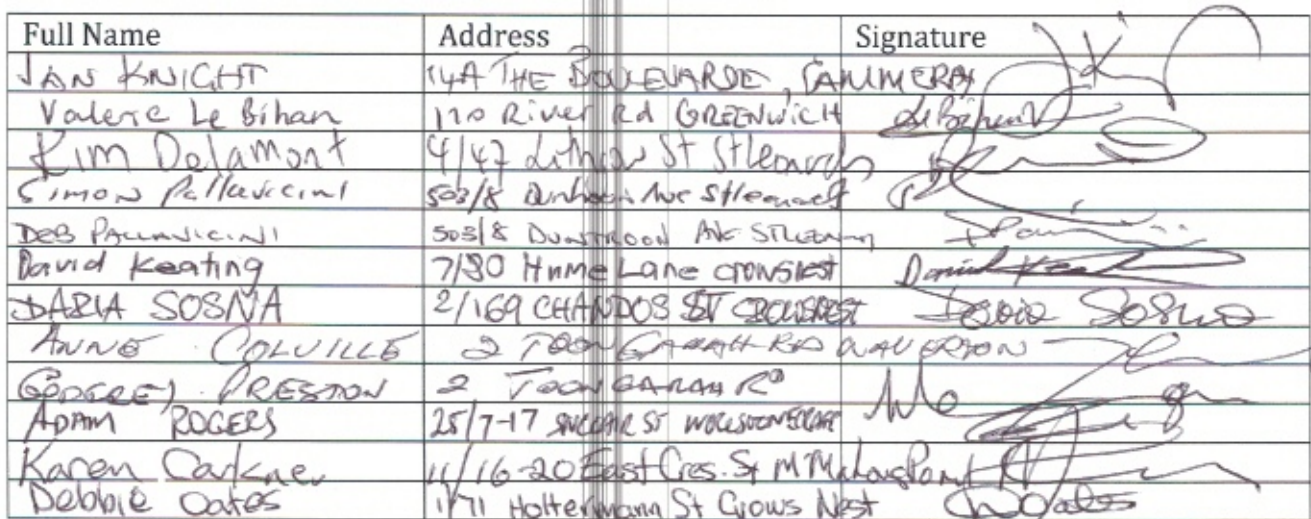 Full Name Address Signature
JAN KNIGHT 14A THE BOULEVARDE, CAMMERAY
Valerie Le Bihan 170 River Rd GREENWICH Le Bihan
Kim Delamont 4/47 Lithgow St St Leonards
Simon Pallavicini 503/8 Ave St Leonards
DEB PALLAVICINI 503/8 DUNTROON AVE
David Keating 7/30 Hume Lane CROWS NEST David
DARIA SOSNA 2/169 CHANDOS ST CROWSNEST Daria Sosna
ANNE COLVILLE 2 TOONGARAH RD WAVERTON
GODFREY PRESTON 2 TOONGARAH RD
ADAM ROGERS 25/7-17 SINCLAIR ST WOLLSTONECRAFT
Karen 11/16-20 East Cres. St McMahons Point
Debbie Oates 1/71 Holtermann St Crows Nest Oates